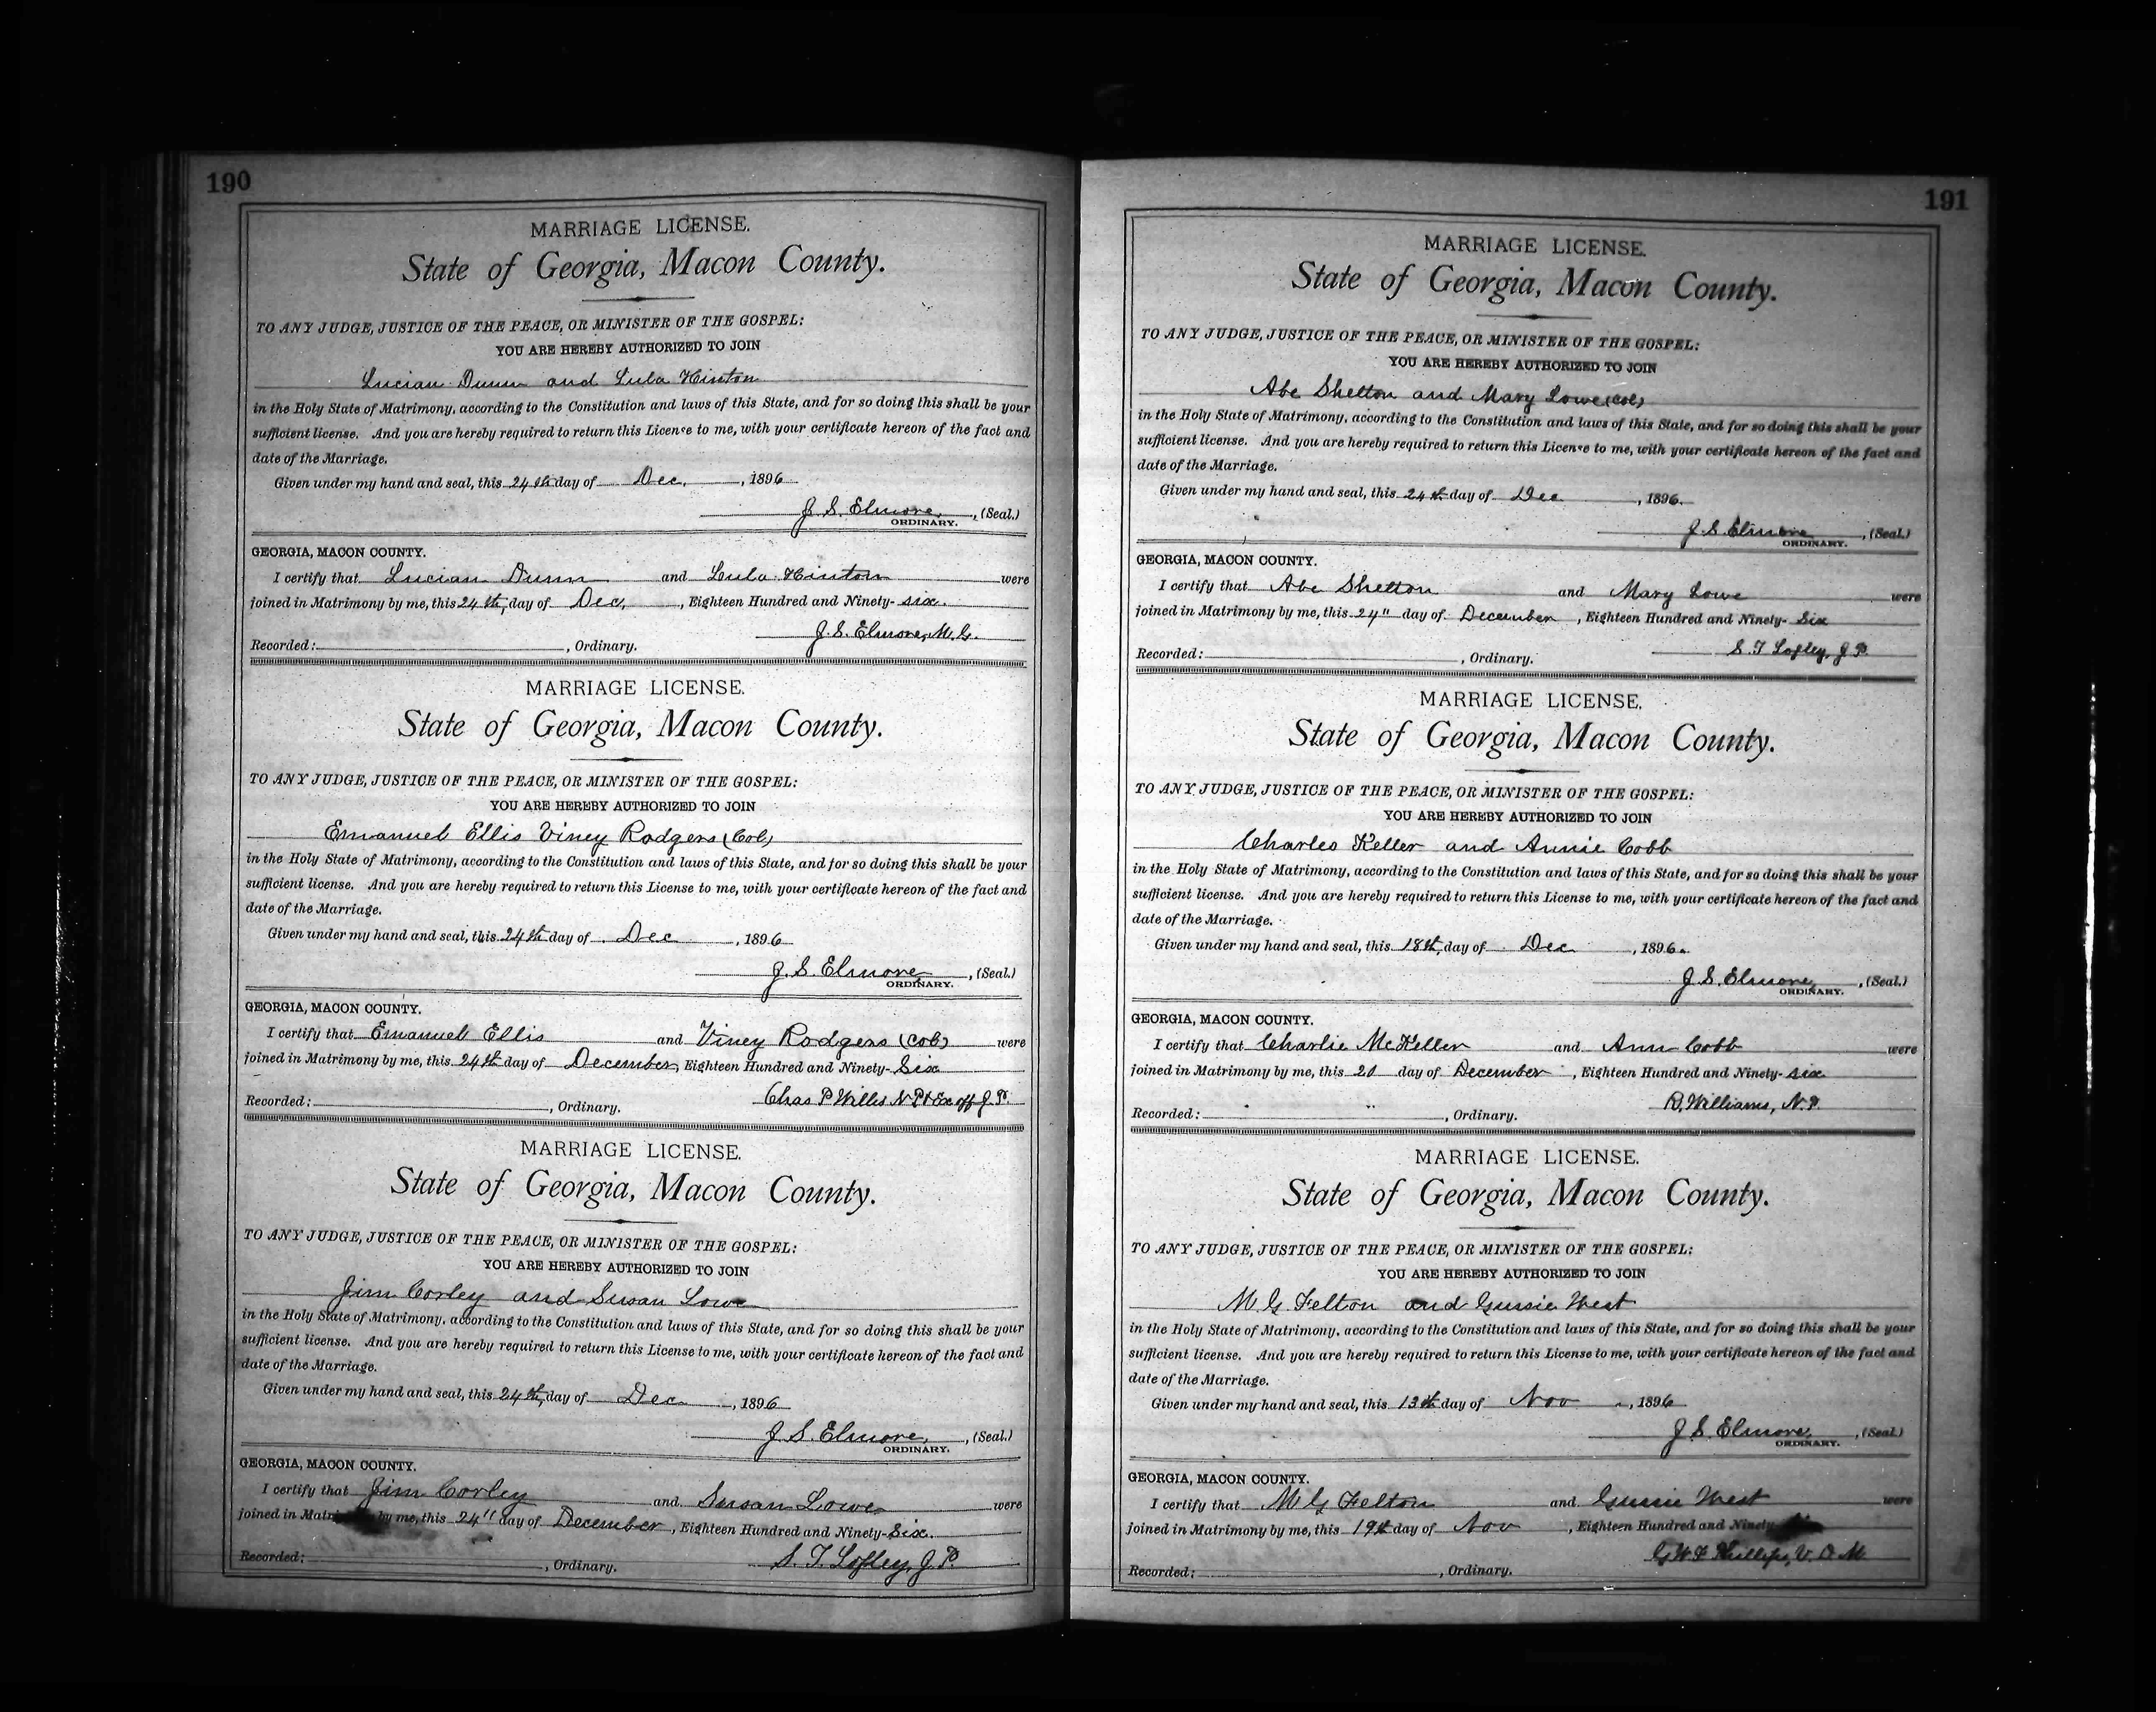 190
MARRIAGE LICENSE.
State of Georgia, Macon County.
TO ANY JUDGE, JUSTICE OF THE PEACE, OR MINISTER OF THE GOSPEL:
YOU ARE HEREBY AUTHORIZED TO JOIN
Lucian Dunn and Lula Hinton
in the Holy State of Matrimony, according to the Constitution and laws of this State, and for so doing this shall be your
sufficient license. And you are hereby required to return this License to me, with your certificate hereon of the fact and
date of the Marriage.
Given under my hand and seal, this 24th day of Dec. , 1896
J. S. Elmore, , (Seal.)
ORDINARY.
GEORGIA, MACON COUNTY.
I certify that Lucian Dunn and Lula Hinton were
joined in Matrimony by me, this 24th, day of Dec, , Eighteen Hundred and Ninety- six.
J. S. Elmore, M. G.
Recorded: , Ordinary.
MARRIAGE LICENSE.
State of Georgia, Macon County.
TO ANY JUDGE, JUSTICE OF THE PEACE, OR MINISTER OF THE GOSPEL:
YOU ARE HEREBY AUTHORIZED TO JOIN
Emanuel Ellis Viney Rodgers (Col)
in the Holy State of Matrimony, according to the Constitution and laws of this State, and for so doing this shall be your
sufficient license. And you are hereby required to return this License to me, with your certificate hereon of the fact and
date of the Marriage.
Given under my hand and seal, this 24th day of Dec , 1896
J. S. Elmore , (Seal.)
ORDINARY.
GEORGIA, MACON COUNTY.
I certify that Emanuel Ellis and Viney Rodgers (Col) were
joined in Matrimony by me, this 24th day of December, Eighteen Hundred and Ninety- Six
Chas P Willis N P & Ex off J. P.
Recorded: , Ordinary.
MARRIAGE LICENSE.
State of Georgia, Macon County.
TO ANY JUDGE, JUSTICE OF THE PEACE, OR MINISTER OF THE GOSPEL:
YOU ARE HEREBY AUTHORIZED TO JOIN
Jim Corley and Susan Lowe
in the Holy State of Matrimony, according to the Constitution and laws of this State, and for so doing this shall be your
sufficient license. And you are hereby required to return this License to me, with your certificate hereon of the fact and
date of the Marriage.
Given under my hand and seal, this 24th, day of Dec , 1896
J. S. Elmore, , (Seal.)
ORDINARY.
GEORGIA, MACON COUNTY.
I certify that Jim Corley and Susan Lowe were
joined in Matri by me, this 24" day of December , Eighteen Hundred and Ninety- Six.
S. T. Lofley, J. P.
Recorded: , Ordinary.
191
MARRIAGE LICENSE.
State of Georgia, Macon County.
TO ANY JUDGE, JUSTICE OF THE PEACE, OR MINISTER OF THE GOSPEL:
YOU ARE HEREBY AUTHORIZED TO JOIN
Abe Shelton and Mary Lowe (Col)
in the Holy State of Matrimony, according to the Constitution and laws of this State, and for so doing this shall be your
sufficient license. And you are hereby required to return this License to me, with your certificate hereon of the fact and
date of the Marriage.
Given under my hand and seal, this 24th day of Dec , 1896.
J. S. Elmore , (Seal.)
ORDINARY.
GEORGIA, MACON COUNTY.
I certify that Abe Shelton and Mary Lowe were
joined in Matrimony by me, this 24" day of December , Eighteen Hundred and Ninety- Six
S. T Lofley, J. P.
Recorded: , Ordinary.
MARRIAGE LICENSE.
State of Georgia, Macon County.
TO ANY JUDGE, JUSTICE OF THE PEACE, OR MINISTER OF THE GOSPEL:
YOU ARE HEREBY AUTHORIZED TO JOIN
Charles Keller and Annie Cobb
in the Holy State of Matrimony, according to the Constitution and laws of this State, and for so doing this shall be your
sufficient license. And you are hereby required to return this License to me, with your certificate hereon of the fact and
date of the Marriage.
Given under my hand and seal, this 18th, day of Dec , 1896.
J. S. Elmore, , (Seal.)
ORDINARY.
GEORGIA, MACON COUNTY.
I certify that Charlie McKeller and Ann Cobb were
joined in Matrimony by me, this 20 day of December , Eighteen Hundred and Ninety- six
B. Williams, N. P.
Recorded: , Ordinary.
MARRIAGE LICENSE.
State of Georgia, Macon County.
TO ANY JUDGE, JUSTICE OF THE PEACE, OR MINISTER OF THE GOSPEL:
YOU ARE HEREBY AUTHORIZED TO JOIN
M. G. Felton and Gussie West
in the Holy State of Matrimony, according to the Constitution and laws of this State, and for so doing this shall be your
sufficient license. And you are hereby required to return this License to me, with your certificate hereon of the fact and
date of the Marriage.
Given under my hand and seal, this 13th day of Nov , 1896
J. S. Elmore, , (Seal.)
ORDINARY.
GEORGIA, MACON COUNTY.
I certify that M G Felton and Gussie West were
joined in Matrimony by me, this 19th day of Nov , Eighteen Hundred and Ninety-
G W F Phillips, V. D. M.
Recorded: , Ordinary.